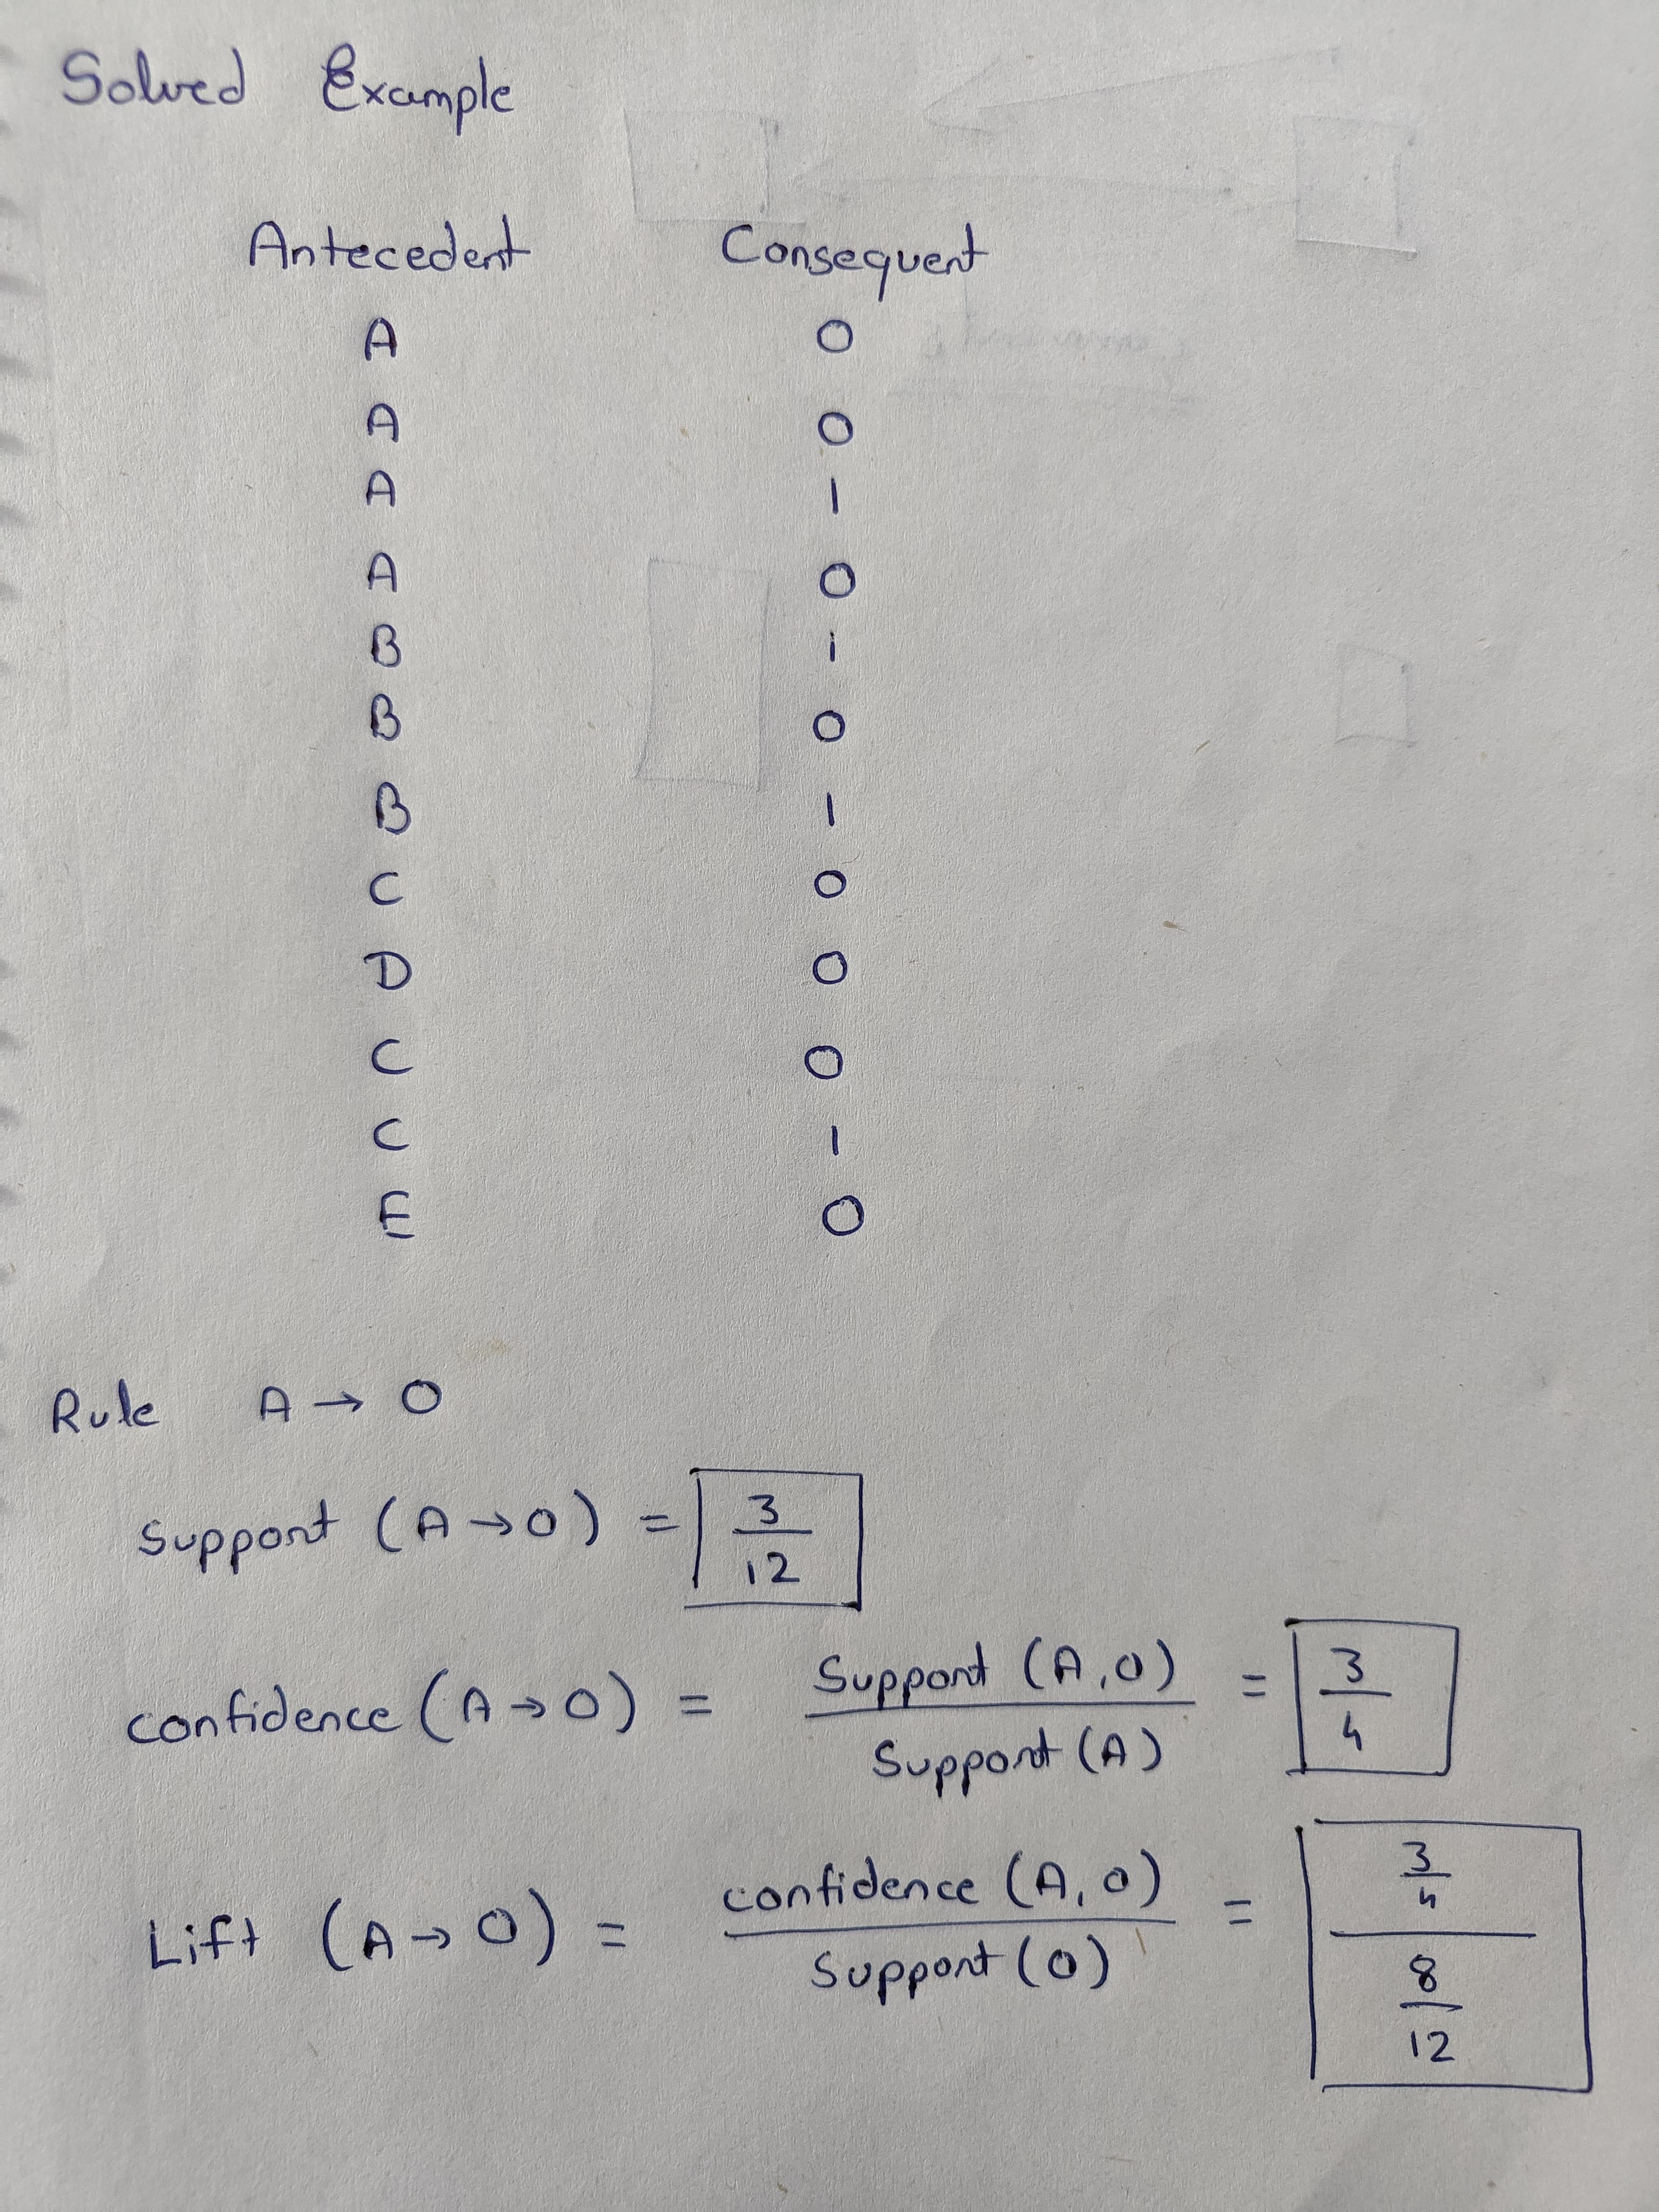 Solved Example
Antecedent Consequent
A 0
A 0
A 1
A 0
B 1
B 0
B 1
C 0
D 0
C 0
C 1
E 0
Rule A → 0
Support (A → 0) = 3/12
confidence (A → 0) = Support (A, 0) / Support (A) = 3/4
Lift (A → 0) = confidence (A, 0) / Support (0) = 3/4 / 8/12